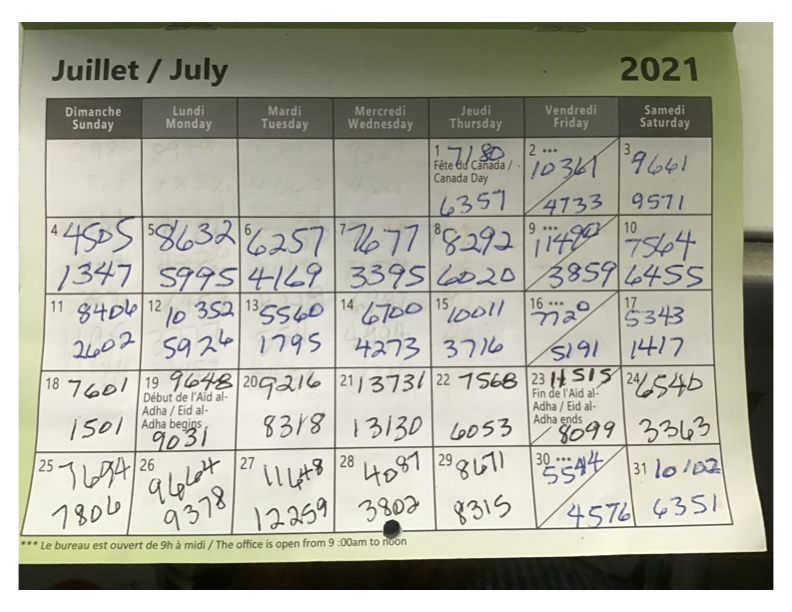 Juillet / July 2021
Dimanche Lundi Mardi Mercredi Jeudi Vendredi Samedi
Sunday Monday Tuesday Wednesday Thursday Friday Saturday
1 7180 2 *** 10361 3 9661
Fête du Canada /
Canada Day
6357 4733 9571
4 4505 5 8632 6 6257 7 7677 8 8292 9 *** 11490 10 7564
1347 5995 4169 3395 6020 3859 6455
11 8406 12 10352 13 5560 14 6700 15 10011 16 *** 7720 17 5343
2602 5926 1795 4273 3716 5191 1417
18 7601 19 9648 20 9216 21 13731 22 7568 23 11515 24 6540
Début de l'Aïd al- Fin de l'Aïd al-
Adha / Eid al- Adha / Eid al-
Adha begins Adha ends
1501 9031 8318 13130 6053 8099 3363
25 7694 26 9664 27 11648 28 4087 29 8671 30 *** 5544 31 10102
7806 9378 12259 3802 8315 4576 6351
*** Le bureau est ouvert de 9h à midi / The office is open from 9 :00am to noon